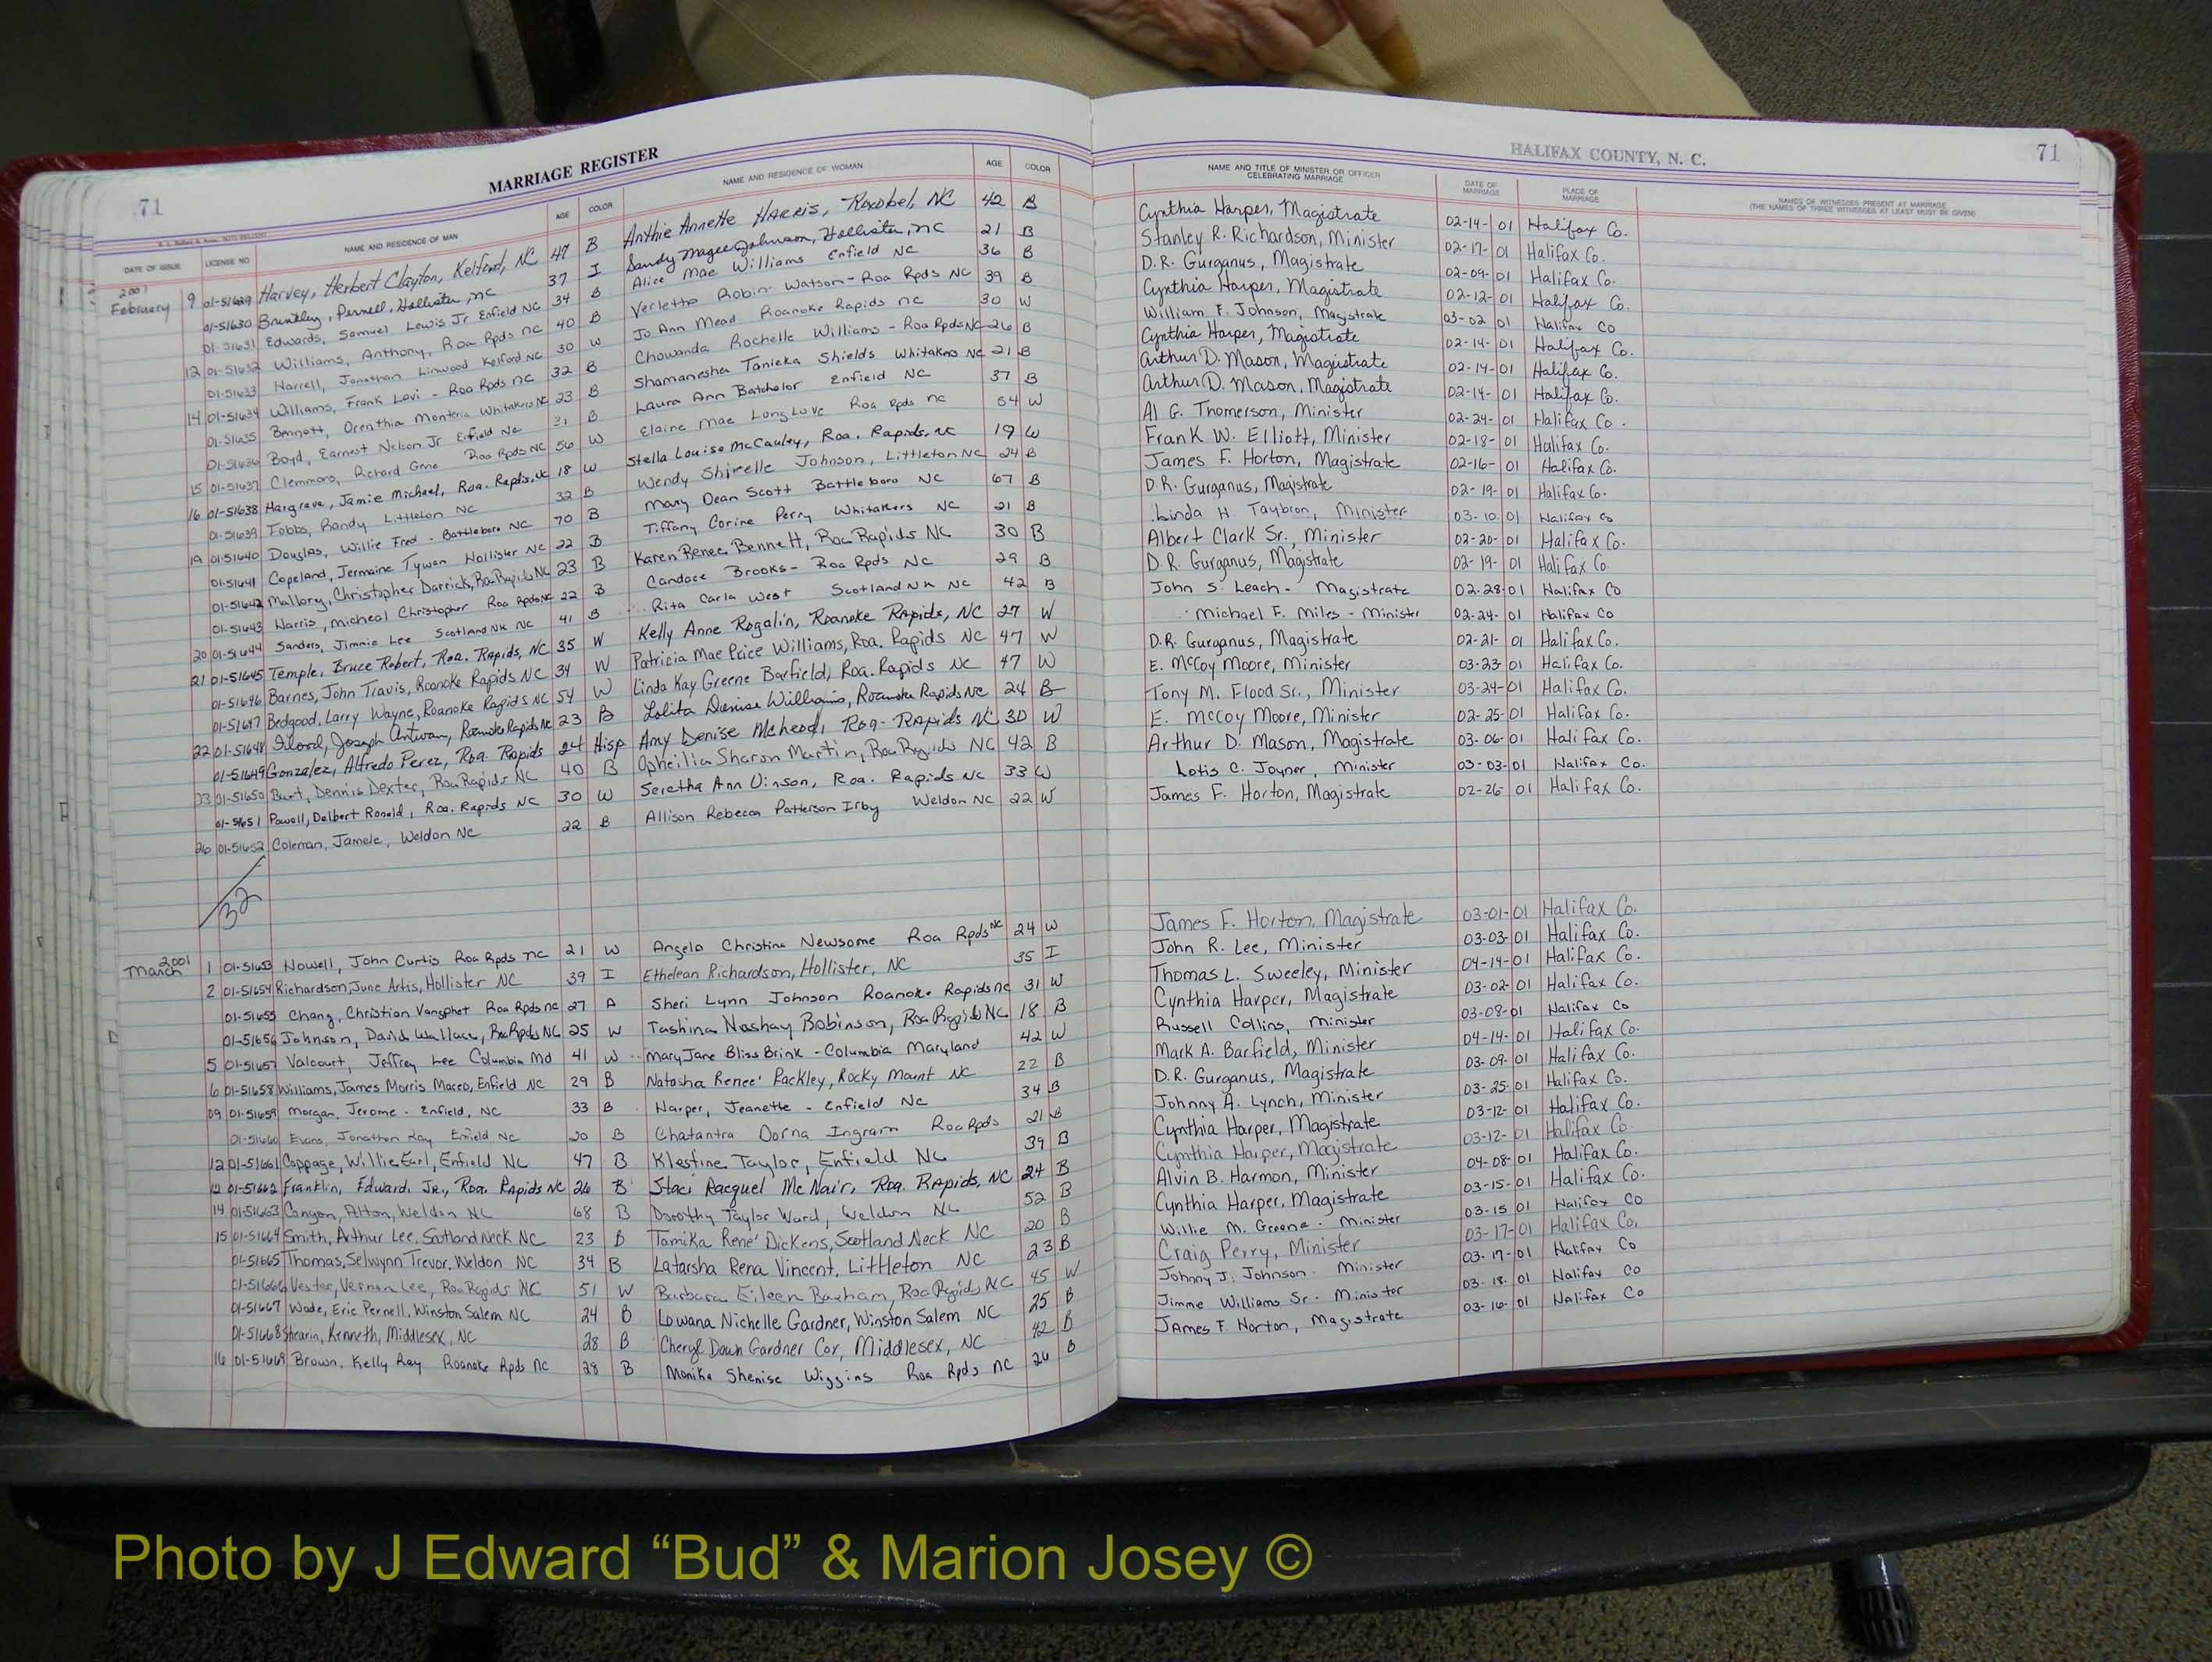 71 MARRIAGE REGISTER
DATE OF ISSUE LICENSE NO NAME AND RESIDENCE OF MAN AGE COLOR NAME AND RESIDENCE OF WOMAN AGE COLOR
2001
February 9 01-51629 Harvey, Herbert Clayton, Kelford, NC 47 B Anthie Annette HARRIS, Roxobel, NC 42 B
01-51630 Brantley, Pernell, Hollister, NC 37 I Sandy Magee Johnson, Hollister, NC 21 B
01-51631 Edwards, Samuel Lewis Jr Enfield NC 34 B Alice Mae Williams Enfield NC 36 B
12 01-51632 Williams, Anthony, Roa Rpds NC 40 B Verlette Robin Watson - Roa Rpds NC 39 B
01-51633 Harrell, Jonathan Linwood Kelford NC 30 W Jo Ann Mead Roanoke Rapids NC 30 W
14 01-51634 Williams, Frank Levi - Roa Rpds NC 32 B Chowanda Rochelle Williams - Roa Rpds NC 26 B
01-51635 Bennett, Orenthia Monteria Whitakers NC 23 B Shamanesha Tanieka Shields Whitakers NC 21 B
01-51636 Boyd, Earnest Nelson Jr Enfield NC 31 B Laura Ann Batchelor Enfield NC 37 B
15 01-51637 Clemmons, Richard Gene Roa Rpds NC 56 W Elaine Mae Longlove Roa Rpds NC 54 W
16 01-51638 Hargrave, Jamie Michael, Roa. Rapids, NC 18 W Stella Louise McCauley, Roa. Rapids, NC 19 W
01-51639 Fobbs, Randy Littleton NC 32 B Wendy Shirelle Johnson, Littleton NC 24 B
19 01-51640 Douglas, Willie Fred - Battleboro NC 70 B Mary Dean Scott Battleboro NC 67 B
01-51641 Copeland, Jermaine Tywan Hollister NC 22 B Tiffany Corine Perry Whitakers NC 21 B
01-51642 Mallory, Christopher Darrick, Roa Rapids NC 23 B Karen Renee Bennett, Roa Rapids NC 30 B
01-51643 Harris, Micheal Christopher Roa Rpds NC 22 B Candace Brooks - Roa Rpds NC 29 B
20 01-51644 Sanders, Jimmie Lee Scotland NK NC 41 B Rita Carla West Scotland NK NC 42 B
21 01-51645 Temple, Bruce Robert, Roa. Rapids, NC 35 W Kelly Anne Rogalin, Roanoke Rapids, NC 27 W
01-51646 Barnes, John Travis, Roanoke Rapids NC 34 W Patricia Mae Price Williams, Roa. Rapids NC 47 W
01-51647 Bedgood, Larry Wayne, Roanoke Rapids NC 54 W Linda Kay Greene Barfield, Roa. Rapids NC 47 W
22 01-51648 Flood, Joseph Antwan, Roanoke Rapids NC 23 B Lolita Denise Williams, Roanoke Rapids NC 24 B
01-51649 Gonzalez, Alfredo Perez, Roa. Rapids 24 Hisp Amy Denise McLeod, Roa. Rapids NC 30 W
23 01-51650 Burt, Dennis Dexter, Roa Rapids NC 40 B Opheilia Sharon Martin, Roa Rapids NC 42 B
01-51651 Powell, Delbert Ronald, Roa. Rapids NC 30 W Seretha Ann Vinson, Roa. Rapids NC 33 W
26 01-51652 Coleman, Jamele, Weldon NC 22 B Allison Rebecca Patterson Irby Weldon NC 22 W
32
2001
March 1 01-51653 Howell, John Curtis Roa Rpds NC 21 W Angela Christina Newsome Roa Rpds NC 24 W
2 01-51654 Richardson, June Artis, Hollister NC 39 I Ethelean Richardson, Hollister, NC 35 I
01-51655 Chang, Christian Vangphet Roa Rpds NC 27 A Sheri Lynn Johnson Roanoke Rapids NC 31 W
01-51656 Johnson, David Wallace, Roa Rpds NC 25 W Tashina Nashay Robinson, Roa Rapids NC 18 B
5 01-51657 Valcourt, Jeffrey Lee Columbia Md 41 W Mary Jane Bliss Brink - Columbia Maryland 42 W
6 01-51658 Williams, James Morris Maceo, Enfield NC 29 B Natasha Renee' Packley, Rocky Mount NC 22 B
09 01-51659 Morgan, Jerome - Enfield, NC 33 B Harper, Jeanette - Enfield NC 34 B
01-51660 Evans, Jonathan Ray Enfield NC 20 B Chatantra Dorna Ingram Roa Rpds 21 B
12 01-51661 Coppage, Willie Earl, Enfield NC 47 B Klestine Taylor, Enfield NC 39 B
12 01-51662 Franklin, Edward, Jr., Roa. Rapids NC 26 B Staci Racquel McNair, Roa. Rapids, NC 24 B
14 01-51663 Canyon, Alton, Weldon NC 68 B Dorothy Taylor Ward, Weldon NC 52 B
15 01-51664 Smith, Arthur Lee, Scotland Neck NC 23 B Tamika Rene' Dickens, Scotland Neck NC 20 B
01-51665 Thomas, Selwynn Trevor, Weldon NC 34 B Latarsha Rena Vincent, Littleton NC 23 B
01-51666 Vester, Vernon Lee, Roa Rapids NC 51 W Barbara Eileen Barham, Roa Rapids, NC 45 W
01-51667 Wade, Eric Pernell, Winston Salem NC 24 B Lowana Nichelle Gardner, Winston Salem NC 25 B
01-51668 Shearin, Kenneth, Middlesex, NC 28 B Cheryl Dawn Gardner Cox, Middlesex, NC 42 B
16 01-51669 Brown, Kelly Ray Roanoke Rpds NC 28 B Monika Shenise Wiggins Roa Rpds NC 26 B
HALIFAX COUNTY, N. C. 71
NAME AND TITLE OF MINISTER OR OFFICER CELEBRATING MARRIAGE DATE OF MARRIAGE PLACE OF MARRIAGE NAMES OF WITNESSES PRESENT AT MARRIAGE
(THE NAMES OF THREE WITNESSES AT LEAST MUST BE GIVEN)
Cynthia Harper, Magistrate 02-14-01 Halifax Co.
Stanley R. Richardson, Minister 02-17-01 Halifax Co.
D.R. Gurganus, Magistrate 02-09-01 Halifax Co.
Cynthia Harper, Magistrate 02-12-01 Halifax Co.
William F. Johnson, Magistrate 03-02 01 Halifax Co
Cynthia Harper, Magistrate 02-14-01 Halifax Co.
Arthur D. Mason, Magistrate 02-14-01 Halifax Co.
Arthur D. Mason, Magistrate 02-14-01 Halifax Co.
Al G. Thomerson, Minister 02-24-01 Halifax Co.
Frank W. Elliott, Minister 02-18-01 Halifax Co.
James F. Horton, Magistrate 02-16-01 Halifax Co.
D.R. Gurganus, Magistrate 02-19-01 Halifax Co.
Linda H Taybron, Minister 03-10 01 Halifax Co
Albert Clark Sr., Minister 02-20-01 Halifax Co.
D.R. Gurganus, Magistrate 02-19-01 Halifax Co.
John S. Leach - Magistrate 02-28 01 Halifax Co
Michael F. Miles - Minister 02-24-01 Halifax Co
D.R. Gurganus, Magistrate 02-21-01 Halifax Co.
E. McCoy Moore, Minister 03-23 01 Halifax Co.
Tony M. Flood Sr., Minister 03-24-01 Halifax Co.
E. McCoy Moore, Minister 02-25-01 Halifax Co.
Arthur D. Mason, Magistrate 03-06-01 Halifax Co.
Lotis C. Joyner, Minister 03-03-01 Halifax Co.
James F. Horton, Magistrate 02-26 01 Halifax Co.
James F. Horton, Magistrate 03-01-01 Halifax Co.
John R. Lee, Minister 03-03-01 Halifax Co.
Thomas L. Sweeley, Minister 04-14-01 Halifax Co.
Cynthia Harper, Magistrate 03-02-01 Halifax Co.
Russell Collins, Minister 03-08-01 Halifax Co
Mark A. Barfield, Minister 04-14-01 Halifax Co.
D.R. Gurganus, Magistrate 03-09-01 Halifax Co.
Johnny A. Lynch, Minister 03-25-01 Halifax Co.
Cynthia Harper, Magistrate 03-12-01 Halifax Co.
Cynthia Harper, Magistrate 03-12-01 Halifax Co.
Alvin B. Harmon, Minister 04-08-01 Halifax Co.
Cynthia Harper, Magistrate 03-15-01 Halifax Co.
Willie M. Greene - Minister 03-15 01 Halifax Co
Craig Perry, Minister 03-17-01 Halifax Co.
Johnny J. Johnson - Minister 03-17-01 Halifax Co
Jimme Williams Sr - Minister 03-18-01 Halifax Co
James F. Horton, Magistrate 03-16-01 Halifax Co
Photo by J Edward “Bud” & Marion Josey ©